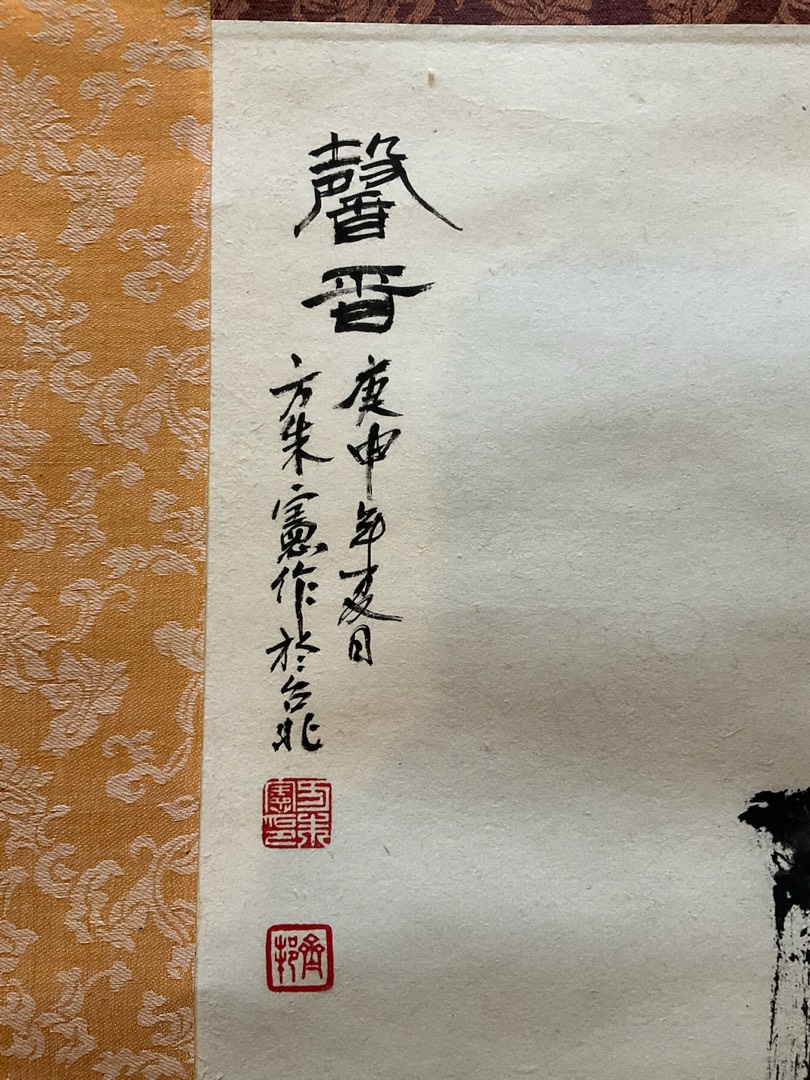 馨香
庚申年夏日
方朱憲作於台北
方朱
憲印